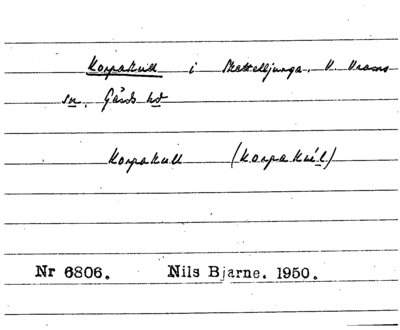 Korpakull i Skättelljunga. V. Vrams
sn. Gärds hd
Korpakull (korpakúl)
Nr 6806. Nils Bjarne. 1950.